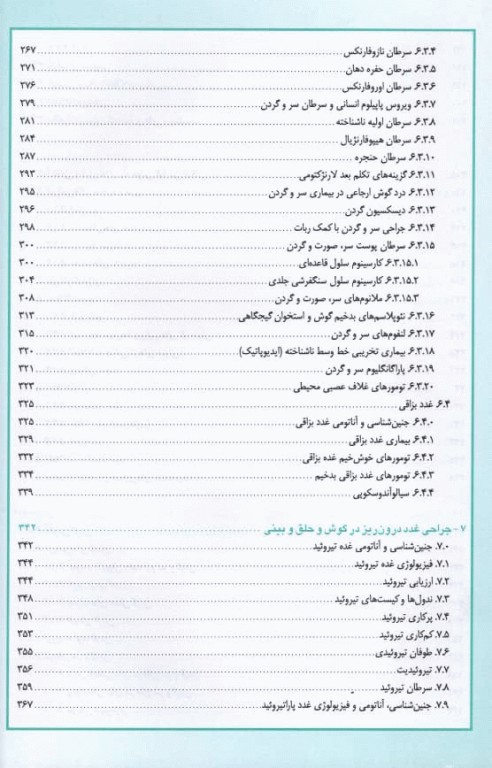 ۶.۳.۴. سرطان نازوفارنکس ۲۶۷
۶.۳.۵. سرطان حفره دهان ۲۷۱
۶.۳.۶. سرطان اوروفارنکس ۲۷۶
۶.۳.۷. ویروس پاپیلوم انسانی و سرطان سر و گردن ۲۷۹
۶.۳.۸. سرطان اولیه ناشناخته ۲۸۱
۶.۳.۹. سرطان هیپوفارنژیال ۲۸۴
۶.۳.۱۰. سرطان حنجره ۲۸۷
۶.۳.۱۱. گزینه‌های تکلم بعد لارنژکتومی ۲۹۳
۶.۳.۱۲. درد گوش ارجاعی در بیماری سر و گردن ۲۹۵
۶.۳.۱۳. دیسکسیون گردن ۲۹۶
۶.۳.۱۴. جراحی سر و گردن با کمک ربات ۲۹۸
۶.۳.۱۵. سرطان پوست سر، صورت و گردن ۳۰۰
۶.۳.۱۵.۱. کارسینوم سلول قاعده‌ای ۳۰۰
۶.۳.۱۵.۲. کارسینوم سلول سنگفرشی جلدی ۳۰۴
۶.۳.۱۵.۳. ملانوم‌های سر، صورت و گردن ۳۰۸
۶.۳.۱۶. نئوپلاسم‌های بدخیم گوش و استخوان گیجگاهی ۳۱۳
۶.۳.۱۷. لنفوم‌های سر و گردن ۳۱۵
۶.۳.۱۸. بیماری تخریبی خط وسط ناشناخته (ایدیوپاتیک) ۳۲۰
۶.۳.۱۹. پاراگانگلیوم سر و گردن ۳۲۱
۶.۳.۲۰. تومورهای غلاف عصبی محیطی ۳۲۳
۶.۴. غدد بزاقی ۳۲۵
۶.۴.۰. جنین‌شناسی و آناتومی غدد بزاقی ۳۲۵
۶.۴.۱. بیماری غدد بزاقی ۳۲۹
۶.۴.۲. تومورهای خوش‌خیم غده بزاقی ۳۳۲
۶.۴.۳. تومورهای غدد بزاقی بدخیم ۳۳۴
۶.۴.۴. سیالوآندوسکوپی ۳۳۹
۷- جراحی غدد درون‌ریز در گوش و حلق و بینی ۳۴۲
۷.۰. جنین‌شناسی و آناتومی غده تیروئید ۳۴۲
۷.۱. فیزیولوژی غده تیروئید ۳۴۴
۷.۲. ارزیابی تیروئید ۳۴۴
۷.۳. ندول‌ها و کیست‌های تیروئید ۳۴۸
۷.۴. پرکاری تیروئید ۳۵۱
۷.۵. کم‌کاری تیروئید ۳۵۳
۷.۶. طوفان تیروئیدی ۳۵۵
۷.۷. تیروئیدیت ۳۵۶
۷.۸. سرطان تیروئید ۳۵۹
۷.۹. جنین‌شناسی، آناتومی و فیزیولوژی غدد پاراتیروئید ۳۶۷